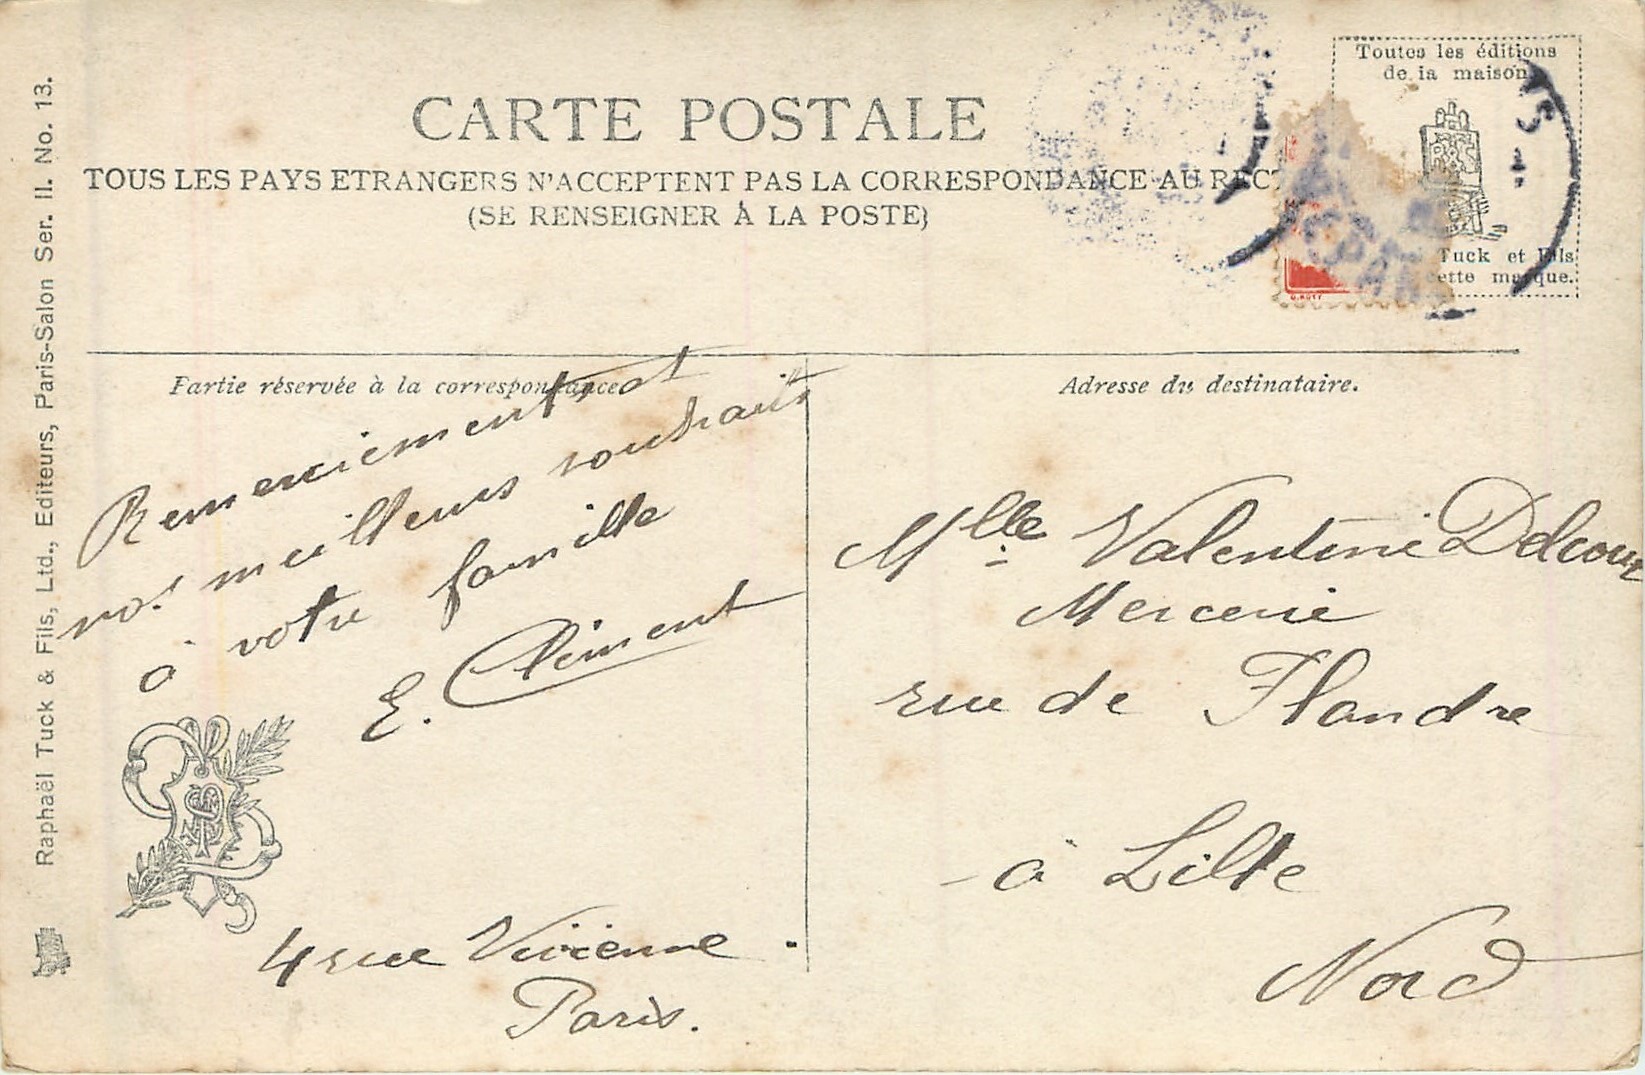 CARTE POSTALE
TOUS LES PAYS ETRANGERS N'ACCEPTENT PAS LA CORRESPONDANCE AU RECT
(SE RENSEIGNER À LA POSTE)
Toutes les éditions
de la maison
Tuck et Fils
cette marque.
Partie réservée à la correspondance
Remerciements et
nos meilleurs souhaits
à votre famille
E. Clément
4 rue Vivienne
Paris.
Adresse du destinataire.
Mlle Valentine Delcour
Mercerie
rue de Flandre
à Lille
Nord
Raphaël Tuck & Fils, Ltd., Editeurs, Paris-Salon Ser. II. No. 13.